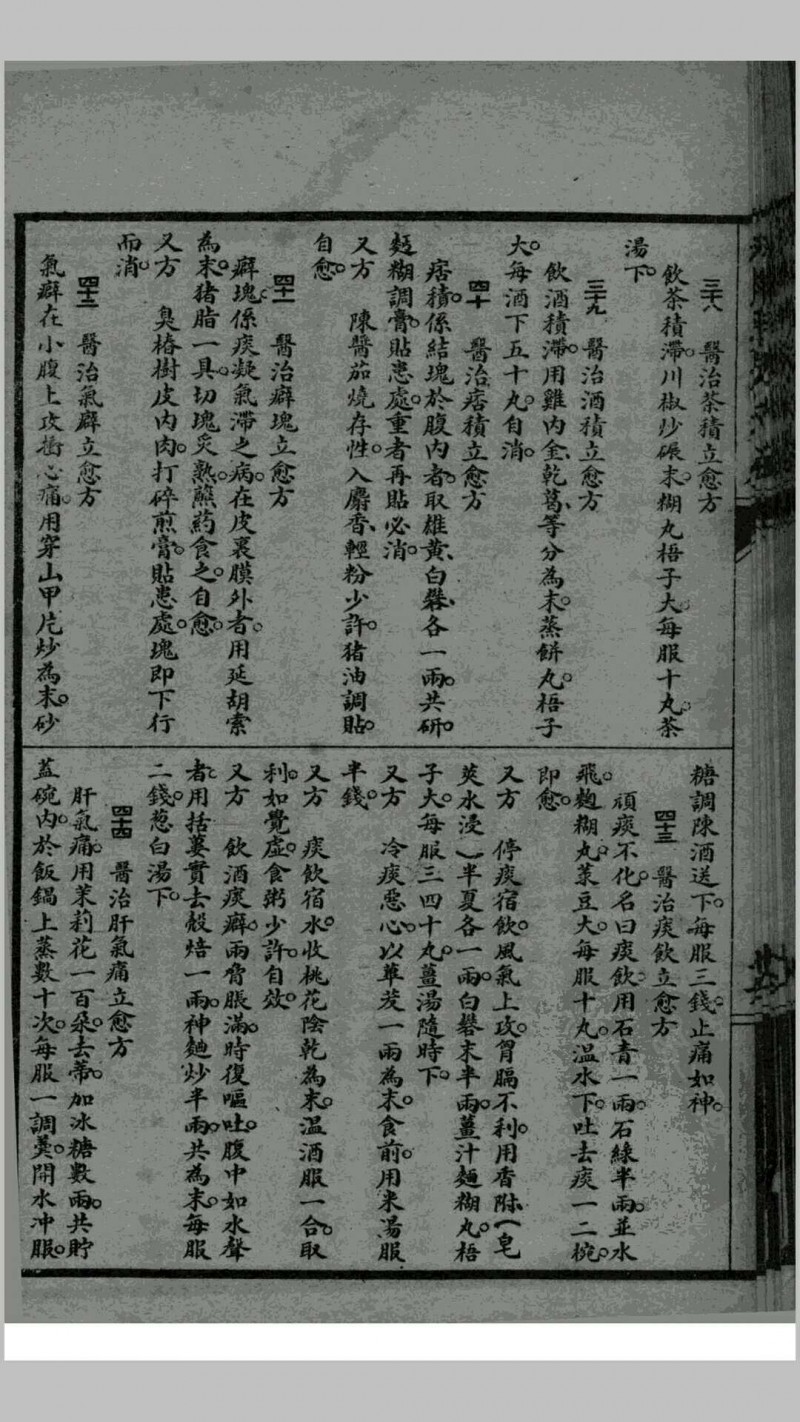 三十八　醫治茶積立愈方
飲茶積滯。川椒炒碾末。糊丸梧子大。每服十丸。茶
湯下。
三十九　醫治酒積立愈方
飲酒積滯。用雞內金、乾葛、等分為末。蒸餅丸。梧子
大。每酒下五十丸。自消。
四十　醫治痞積立愈方
痞積。係結塊於腹內者。取雄黃、白礬、各一兩。共研。
麪糊調膏。貼患處。重者再貼必消。
又方　陳醬茄燒存性。入麝香、輕粉少許。猪油調貼。
自愈。
四十一　醫治癖塊立愈方
癖塊。係痰凝氣滯之病。在皮裏膜外者。用延胡索
為末。猪脂一具。切塊炙熟。蘸藥食之。自愈。
又方　臭椿樹皮內肉。打碎煎膏。貼患處。塊即下行
而消。
四十二　醫治氣癖立愈方
氣癖在小腹上攻衝心痛。用穿山甲片炒為末。砂
糖調陳酒送下。每服三錢。止痛如神。
四十三　醫治痰飲立愈方
頑痰不化。名曰痰飲。用石青一兩。石綠半兩。並水
飛。麴糊丸。菉豆大。每服十丸。温水下。吐去痰一二椀。
即愈。
又方　停痰宿飲。風氣上攻。胷膈不利。用香附（皂
莢水浸）半夏各一兩。白礬末半兩。薑汁麵糊丸。梧
子大。每服三四十丸。薑湯隨時下。
又方　冷痰惡心。以蓽茇一兩為末。食前。用米湯服
半錢。
又方　痰飲宿水。收桃花陰乾為末。温酒服一合。取
利。如覺虛。食粥少許。自效。
又方　飲酒痰癖。兩脅脹滿。時復嘔吐。腹中如水聲
者。用括蔞實去殼焙一兩。神麯炒半兩。共為末。每服
二錢。葱白湯下。
四十四　醫治肝氣痛立愈方
肝氣痛。用茉莉花一百朵。去蒂。加冰糖數兩。共貯
蓋碗內。於飯鍋上蒸數十次。每服一調羹。開水沖服。